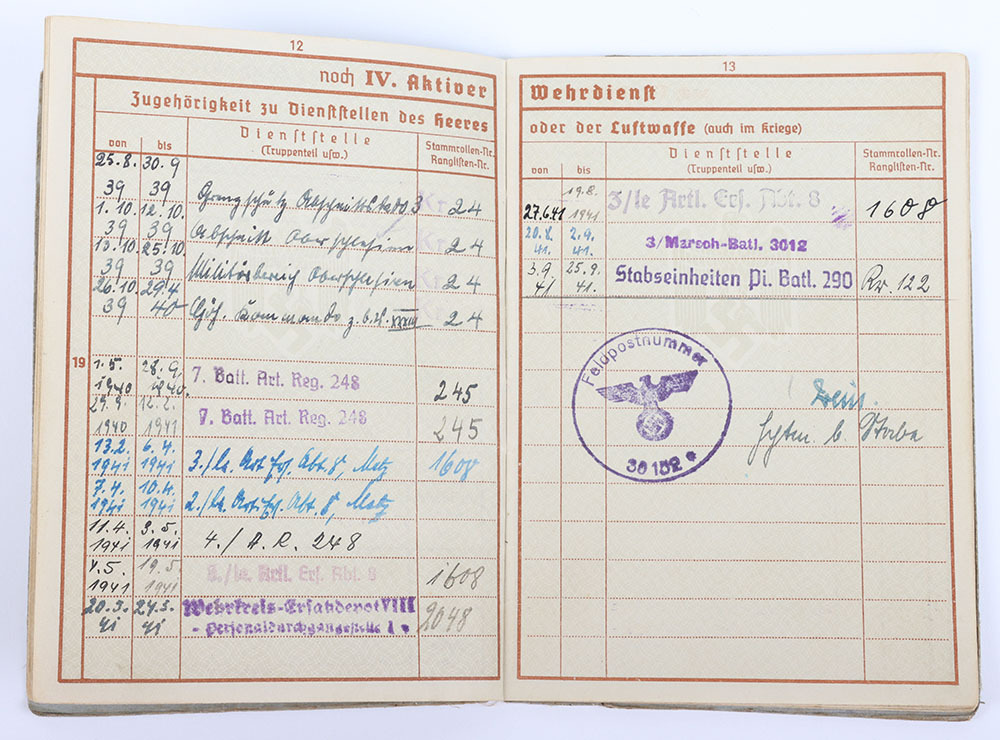 12
noch IV. Aktiver
Zugehörigkeit zu Dienststellen des Heeres
von
bis
Dienststelle
(Truppenteil usw.)
Stammrollen-Nr.
Ranglisten-Nr.
25.8. 30.9
39 39 Grenzschutz Abschnittskdo. 3 24
1.10. 12.10.
39 39 Abschnitt Oberschlesien 24
13.10. 25.10.
39 39 Militärbereich Oberschlesien 24
26.10. 29.4
39 40 Höh. Kommando z.b.V. 24
19
1.5. 28.9.
1940 1940. 7. Batt. Art. Reg. 248 245
29.9. 12.2.
1940 1941 7. Batt. Art. Reg. 248 245
13.2. 6.4.
1941 1941 3./le. Art. Ers. Abt. 8, Metz 1608
7.4. 10.4.
1941 1941 2./le. Art. Ers. Abt. 8, Metz
11.4. 3.5.
1941 1941 4./A.R. 248
4.5. 19.5.
1941 1941 /le. Artl. Ers. Abt. 8 1608
20.5. 24.5.
41 41 Wehrkreis-Ersatzdepot VIII 2048
- Personaldurchgangsstelle 1 •
13
Wehrdienst
oder der Luftwaffe (auch im Kriege)
von
bis
Dienststelle
(Truppenteil usw.)
Stammrollen-Nr.
Ranglisten-Nr.
19.8.
27.6.41 1941 3/le Artl. Ers. Abt. 8 1608
20.8. 2.9.
41. 41. 3/Marsch-Batl. 3012
3.9. 25.9.
41 41. Stabseinheiten Pi. Batl. 290 Rr. 122
Feldpostnummer
36152
Hptm. b. Stabe